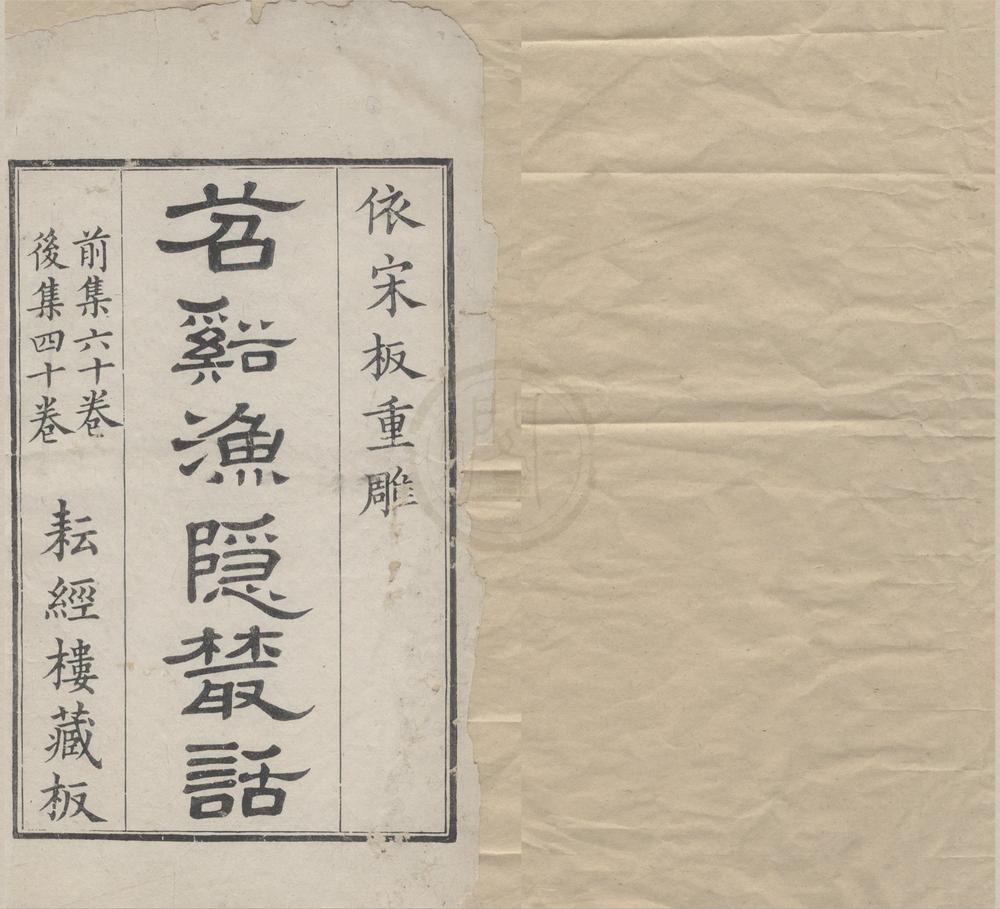 依宋板重雕
苕谿漁隱叢話
前集六十卷
後集四十卷
耘經樓藏板